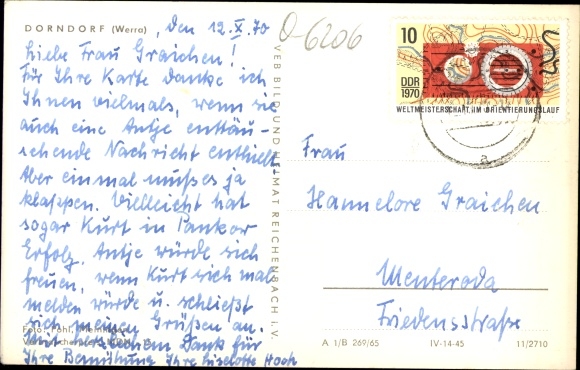 DORNDORF (Werra), den 12.X.70
O-6206
Liebe Frau Graichen!
Für Ihre Karte danke ich
Ihnen vielmals, wenn sie
auch eine Antje enttäu-
schende Nachricht enthielt.
Aber einmal muß es ja
klappen. Vielleicht hat
sogar Kurt in Pankow
Erfolg. Antje würde sich
freuen, wenn Kurt sich mal
melden würde u. schließt
sich meinen Grüßen an.
Mit herzlichem Dank für
Ihre Bemühung Ihre Liselotte Hoch
Foto: Pohl,
VEB BILD UND HEIMAT REICHENBACH i. V.
10
DDR
1970
WELTMEISTERSCHAFT IM ORIENTIERUNGSLAUF
a
Frau
Hannelore Graichen
Menteroda
Friedensstraße
A 1/B 269/65 IV-14-45 11/2710